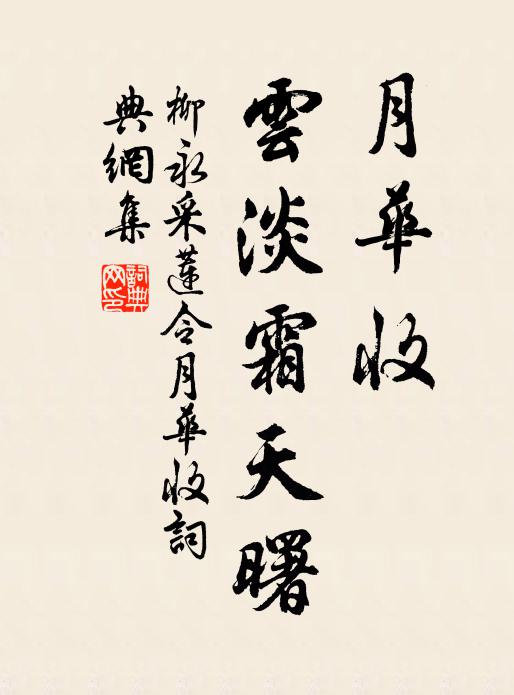 月華收
雲淡霜天曙
柳永采蓮令月華收詞
典網集
詞典网印